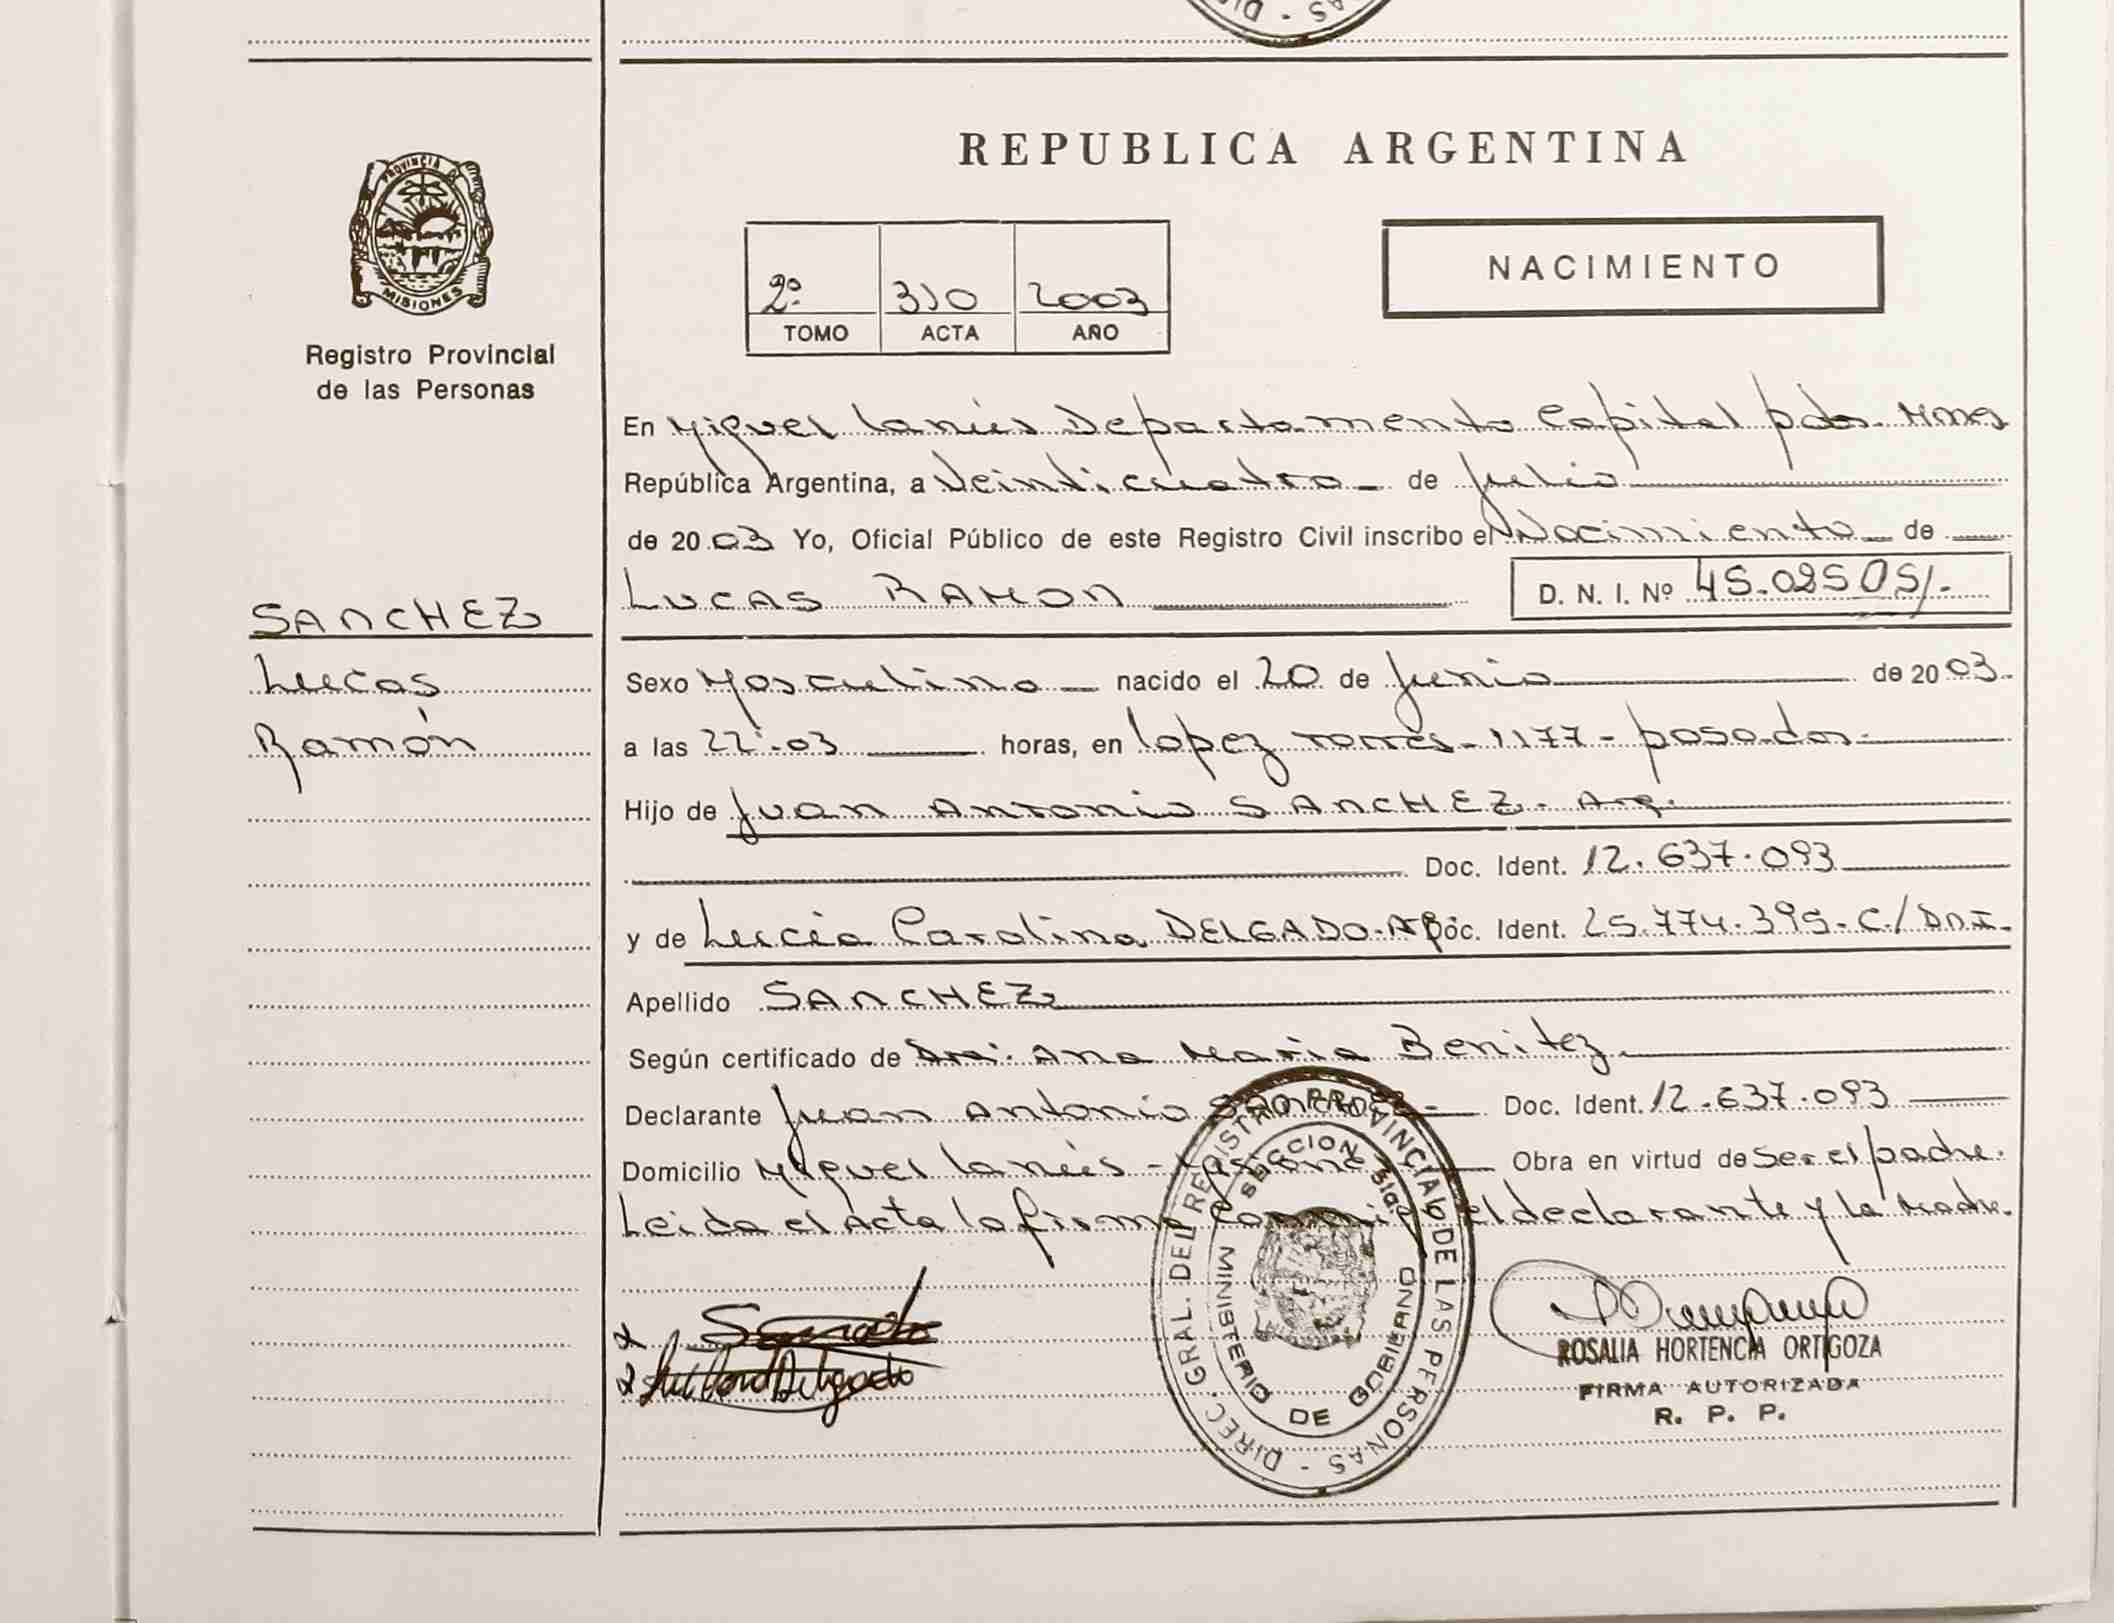 REPUBLICA ARGENTINA
PROVINCIA DE MISIONES
Registro Provincial
de las Personas
NACIMIENTO
2º 310 2003
TOMO ACTA AÑO
En Miguel Lanús Departamento Capital pdas. Mnes
República Argentina, a Veinticuatro de Julio
de 2003 Yo, Oficial Público de este Registro Civil inscribo el Nacimiento de
LUCAS RAMON D. N. I. Nº 45.025 05/.-
SANCHEZ
Lucas
Ramón
Sexo Masculino nacido el 20 de Junio de 2003.
a las 22.-03 horas, en Lopez Torres-1177-posadas.
Hijo de Juan Antonio SANCHEZ. Arg.
Doc. Ident. 12.637.093
y de Lucia Carolina DELGADO-Doc. Ident. 25.774.395-C/DNI.
Apellido SANCHEZ
Según certificado de Dra. Ana Maria Benitez
Declarante Juan Antonio SANCHEZ- Doc. Ident. 12.637.093
Domicilio Miguel Lanús - Misiones Obra en virtud de Ser el padre.
Leida el Acta la firma Conmigo el declarante y la Madre.
DIREC. GRAL. DEL REGISTRO PROVINCIAL DE LAS PERSONAS
MINISTERIO DE GOBIERNO
ROSALIA HORTENCIA ORTIGOZA
FIRMA AUTORIZADA
R. P. P.